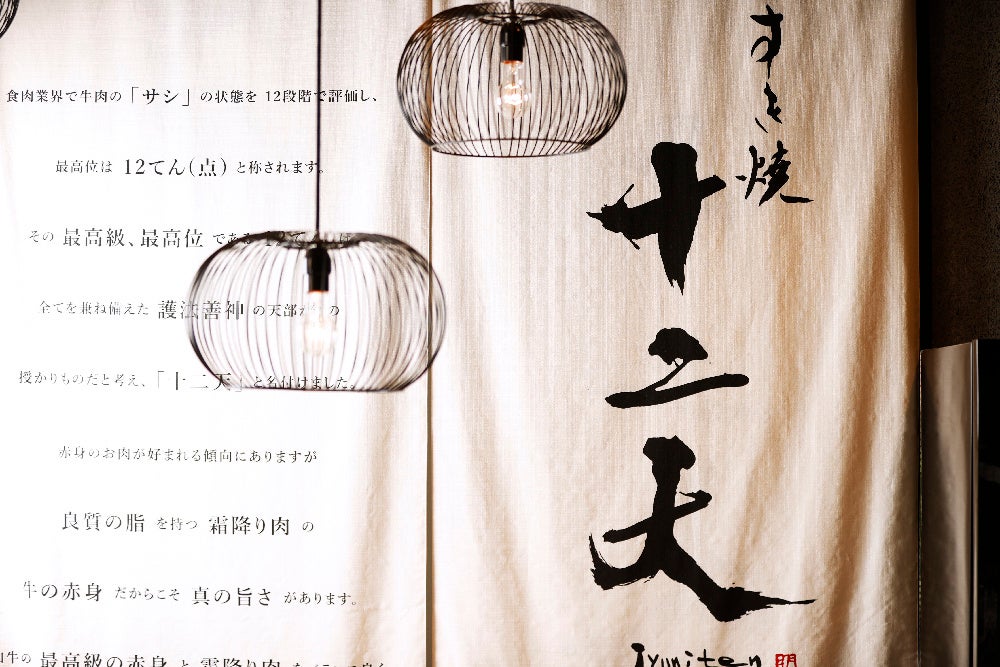 すき焼
十二天
Jyuniten
食肉業界で牛肉の「サシ」の状態を 12段階で評価し、
最高位は 12てん(点) と称されます。
その 最高級、最高位 である
全てを兼ね備えた 護法善神 の天部 の
授かりものだと考え、「十二天」と名付けました。
赤身のお肉が好まれる傾向にありますが
良質の脂 を持つ 霜降り肉 の
牛の赤身 だからこそ 真の旨さ があります。
牛の 最高級の赤身 と 霜降り肉